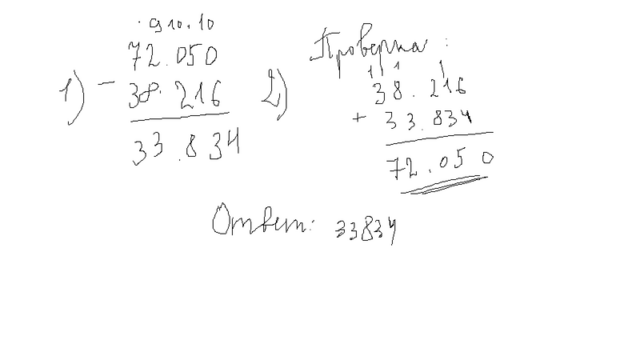 . 9 10 . 10
72.050
1) - 38.216
33.834
2) Проверка:
1 1 1
38.216
+ 33.834
72.050
Ответ: 33834